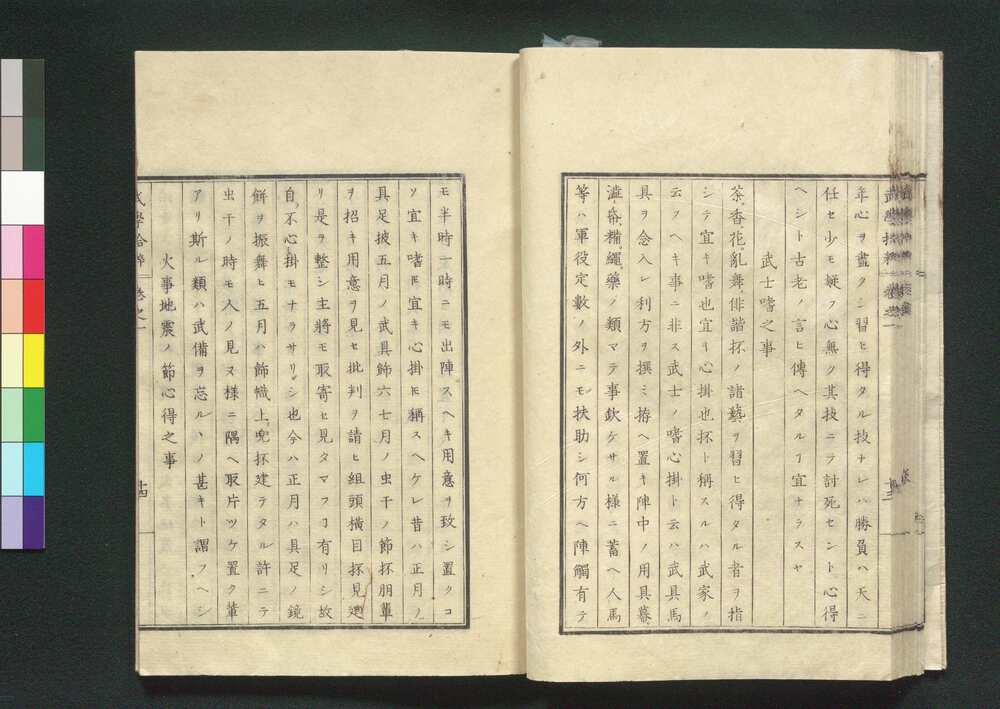 年心ヲ盡クシ習ヒ得タル技ナレハ勝負ハ天ニ
任セ少モ疑フ心無ク其技ニテ討死セント心得
ヘシト古老ノ言ヒ傳ヘタルヿ宜ナラスヤ
武士嗜之事
茶、香、花、亂舞俳諧抔ノ諸藝ヲ習ヒ得タル者ヲ指
シテ宜キ嗜也宜キ心掛也抔ト稱スルハ武家ノ
云フヘキ事ニ非ス武士ノ嗜心掛ト云ハ武具馬
具ヲ念入レ利方ヲ撰ミ拵ヘ置キ陣中ノ用具幕、
糒、繩、藥ノ類マテ事欽ケサル樣ニ蓄ヘ人馬
等ハ軍役定數ノ外ニモ扶助シ何方ヘ陣觸有テ
モ半時一時ニモ出陣スヘキ用意ヲ致シ置クコ
ソ宜キ嗜𪜈宜キ心掛𪜈稱スヘケレ昔ハ正月ノ
具足披五月ノ武具飾六七月ノ虫干ノ節抔朋輩
ヲ招キ用意ヲ見セ批判ヲ請ヒ組頭橫目抔見廻
リ是ヲ整シ主將モ取寄セ見タマフヿ有リシ故
自、不心掛モナラサリシ也今ハ正月ハ具足ノ鏡
餅ヲ振舞ヒ五月ハ飾幟上、兜抔建テタル許ニテ
虫干ノ時モ人ノ見ヌ樣ニ隅ヘ取片ツケ置ク輩
アリ斯ル類ハ武備ヲ忘ルヽノ甚キト謂フヘシ
火事地震ノ節心得之事
十四